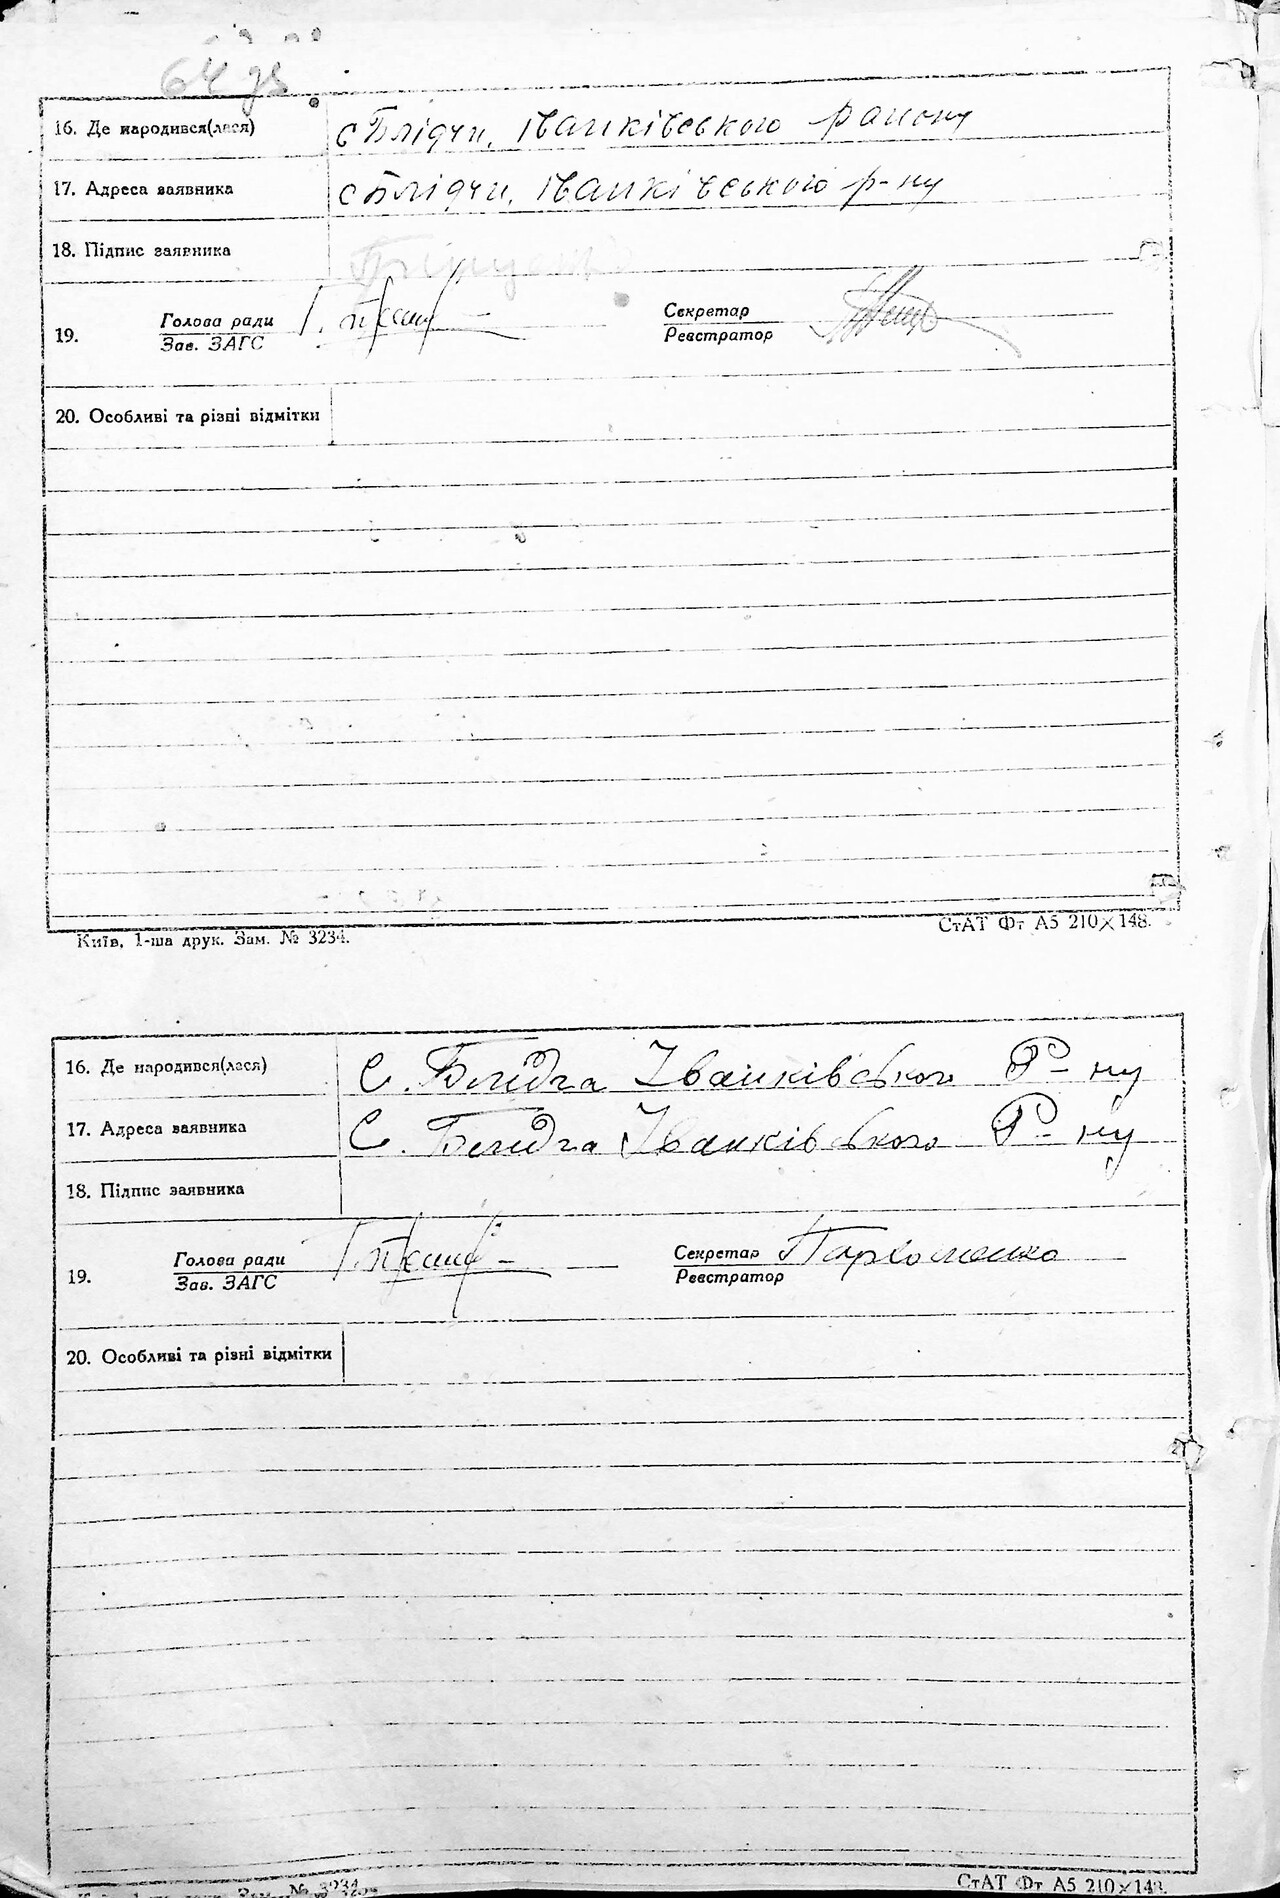 64 зв
16. Де народився(лася) с Блідчи, Іванківського району
17. Адреса заявника с Блідчи, Іванківського р-ну
18. Підпис заявника
19. Голова ради Секретар
Зав. ЗАГС Реєстратор
20. Особливі та різні відмітки
Київ, 1-ша друк. Зам. № 3234. СтАТ Фт А5 210×148.
16. Де народився(лася) С. Блідча Іванківського Р-ну
17. Адреса заявника С. Блідча Іванківського Р-ну
18. Підпис заявника
19. Голова ради Секретар Пархоменко
Зав. ЗАГС Реєстратор
20. Особливі та різні відмітки
№ 3234 СтАТ Фт А5 210×148.